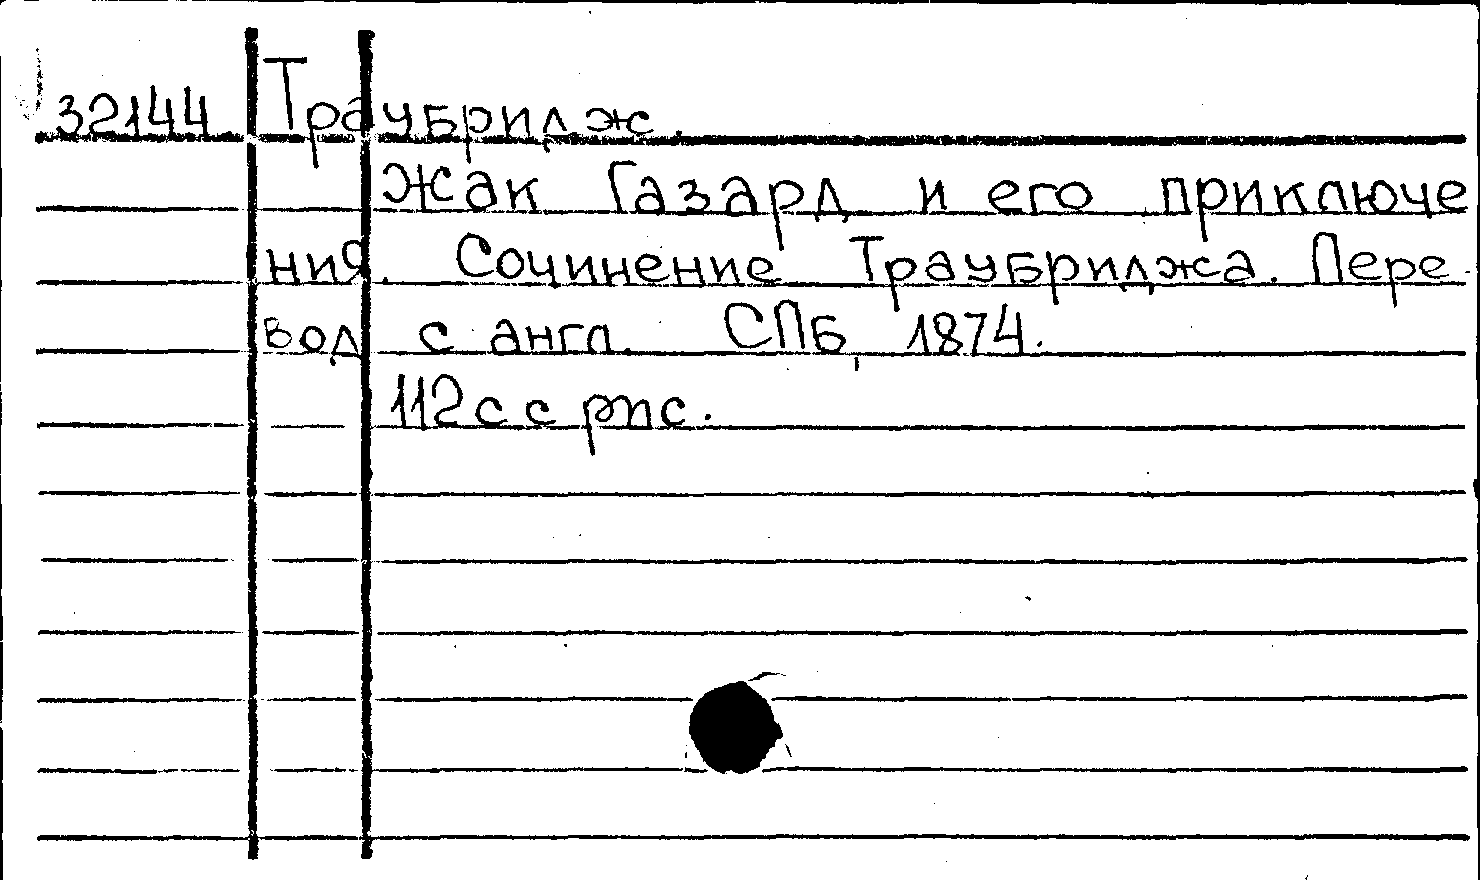 32144 Траубридж.
Жак Газард и его приключе
ния. Сочинение Траубриджа. Пере
вод с англ. СПБ, 1874.
112 с с рис.